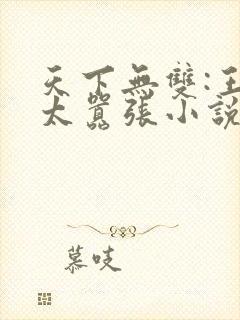 天下無雙:王
太囂張小說
慕吱